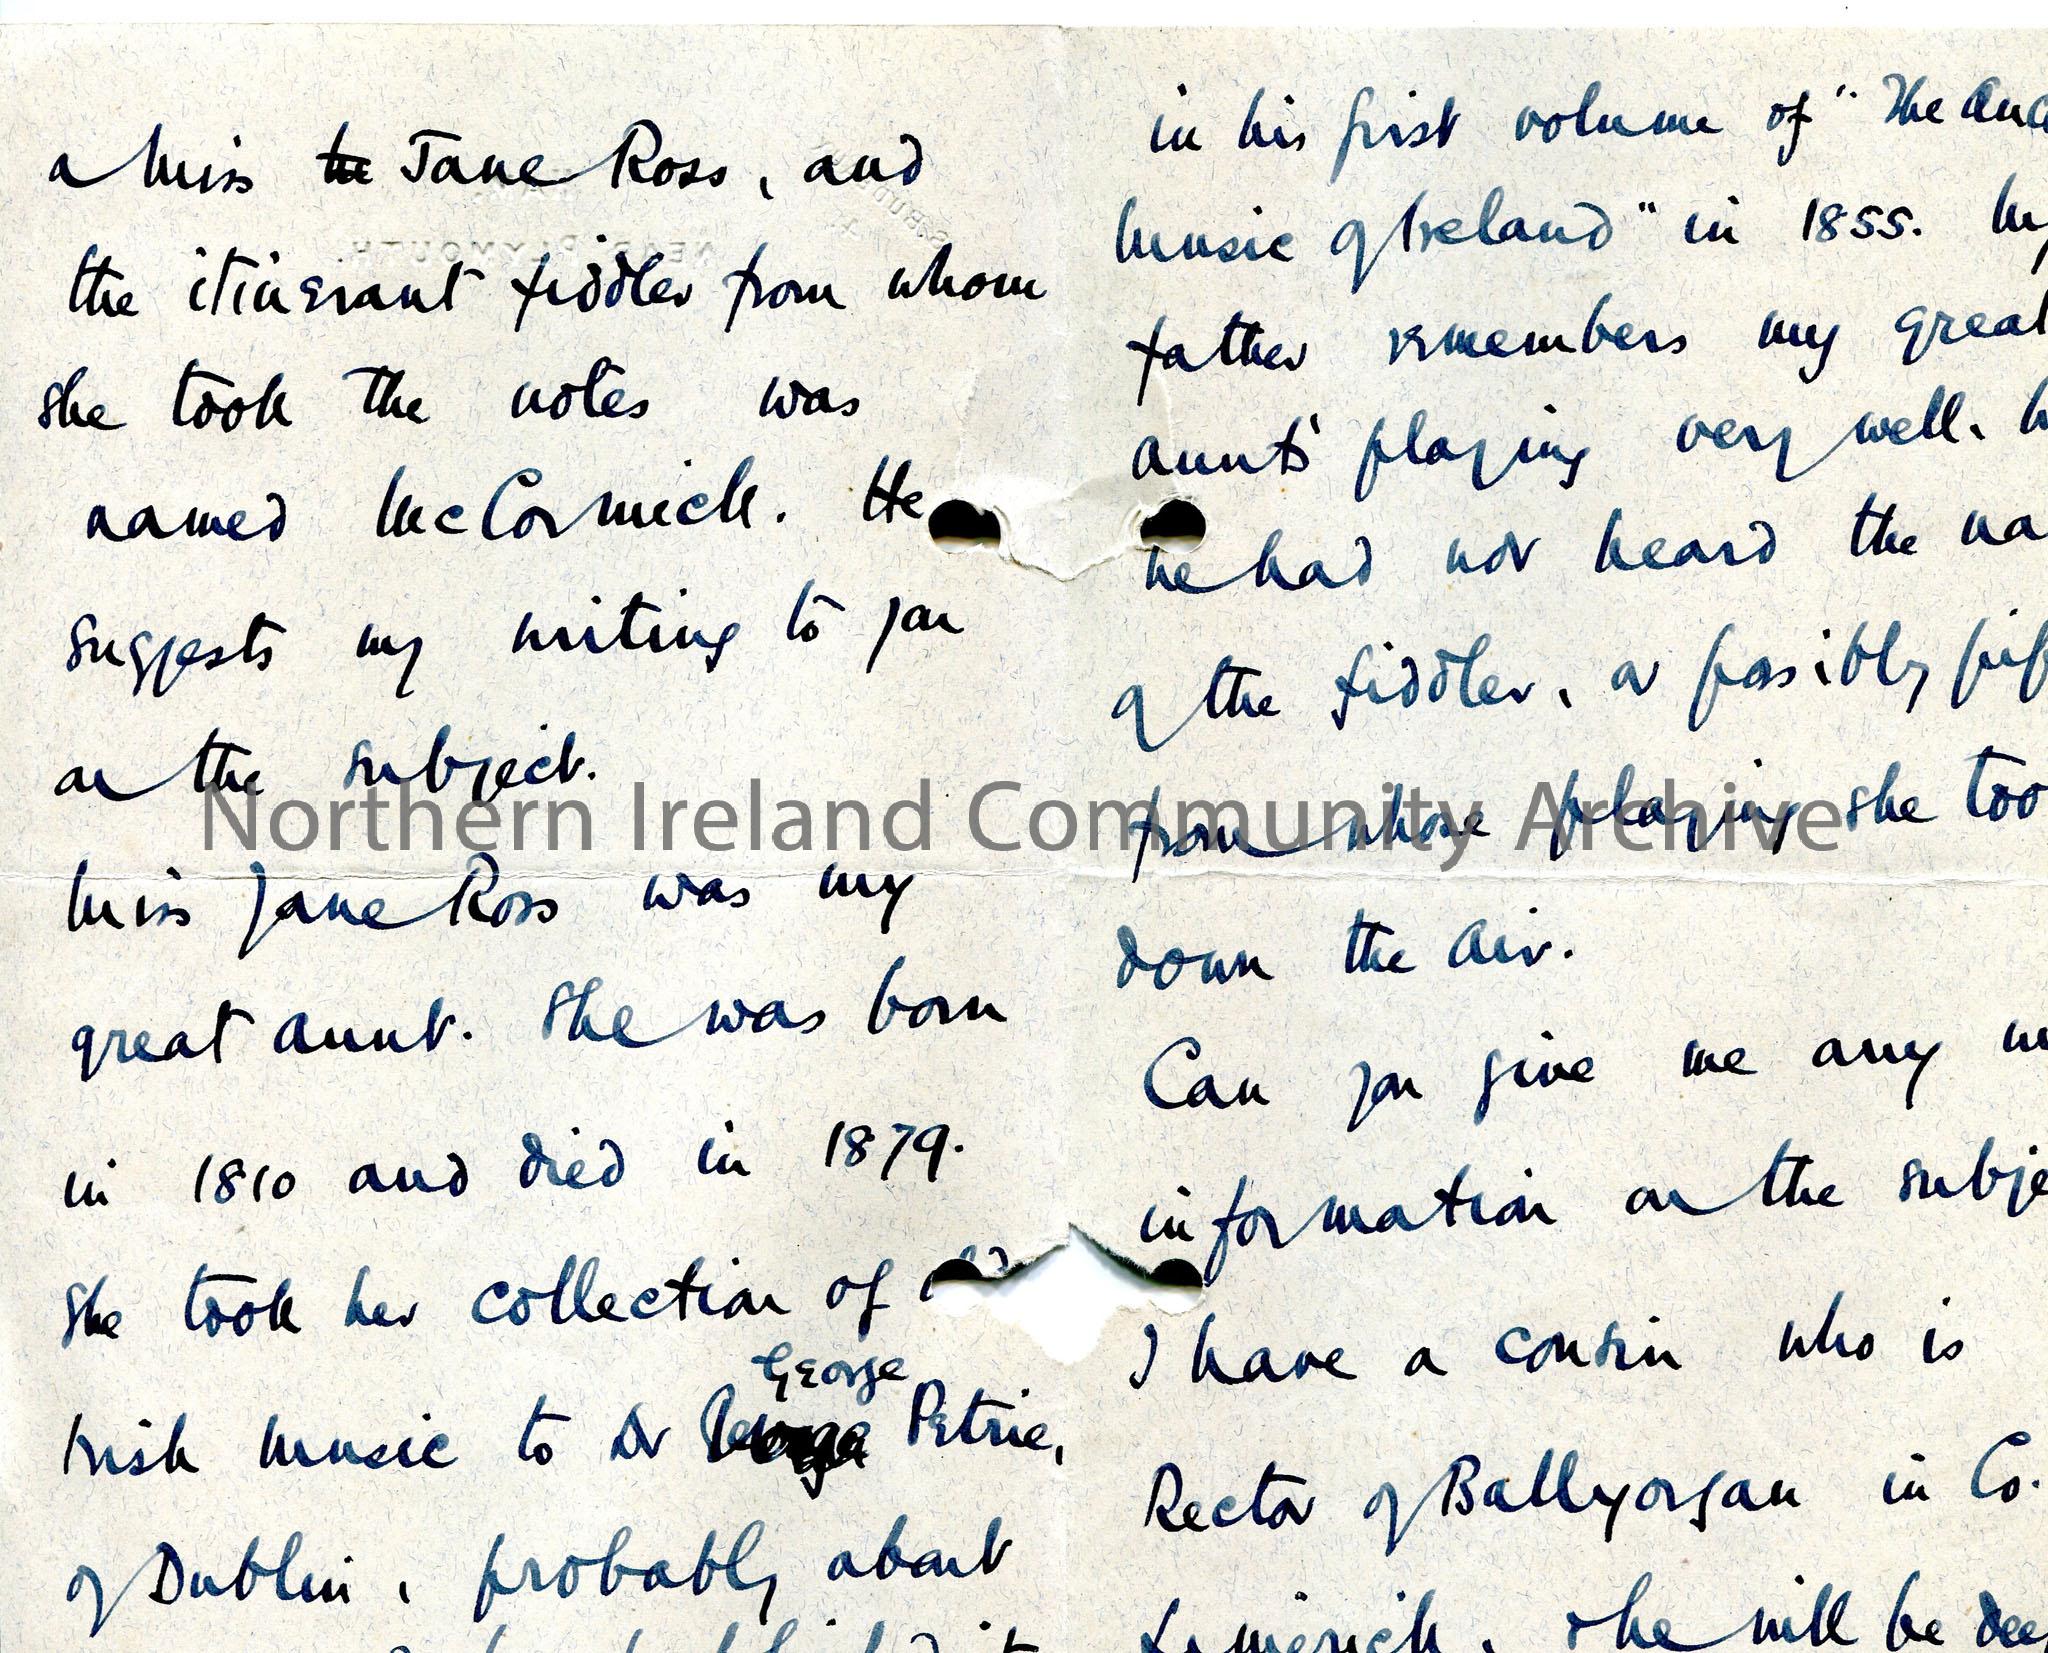 a Miss he Jane Ross, and
the itinerant fiddler from whom
she took the notes was
named McCormick. He
suggests my writing to you
on the subject.
Miss Jane Ross was my
great aunt. She was born
in 1810 and died in 1879.
She took her collection of
George
Irish music to Dr Petrie,
of Dublin, probably about
in his first volume of "The
music of Ireland" in 1855. My
father remembers my great
aunts' playing very well.
he had not heard the
of the fiddler, or possibly
from whose playing she
down the Air.
Can you give me any
information on the
I have a cousin who is
Rector of Ballyorgan in Co.
Limerick, & he will be
Northern Ireland Community Archive